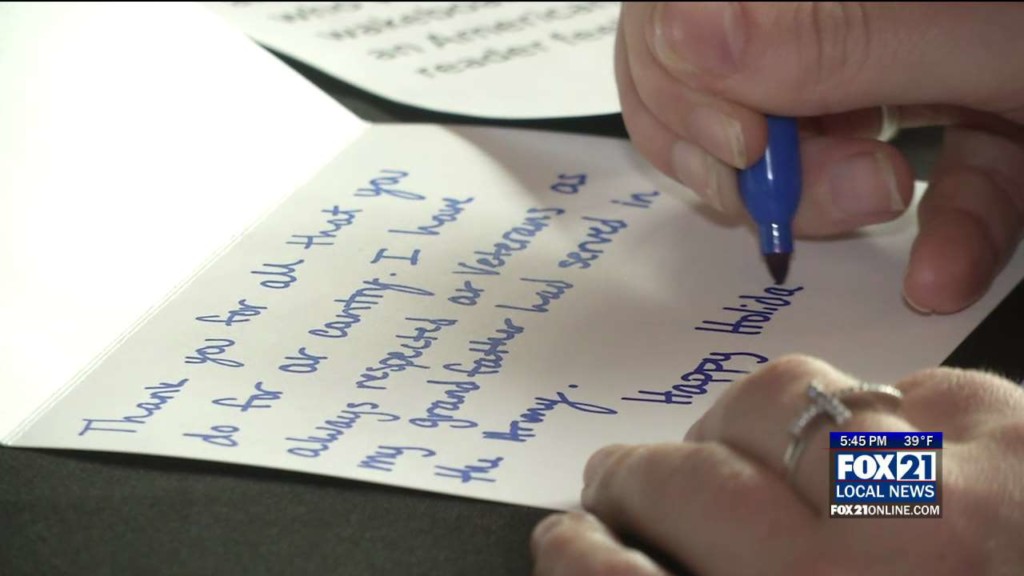 who
wakeboa
an America
reader fea
Thank you for all that you
do for ar cantry. I have
always respected ar Veterans as
my grandfather had served in
the Army.
Happy Holida
5:45 PM 39°F
FOX 21
LOCAL NEWS
FOX21ONLINE.COM